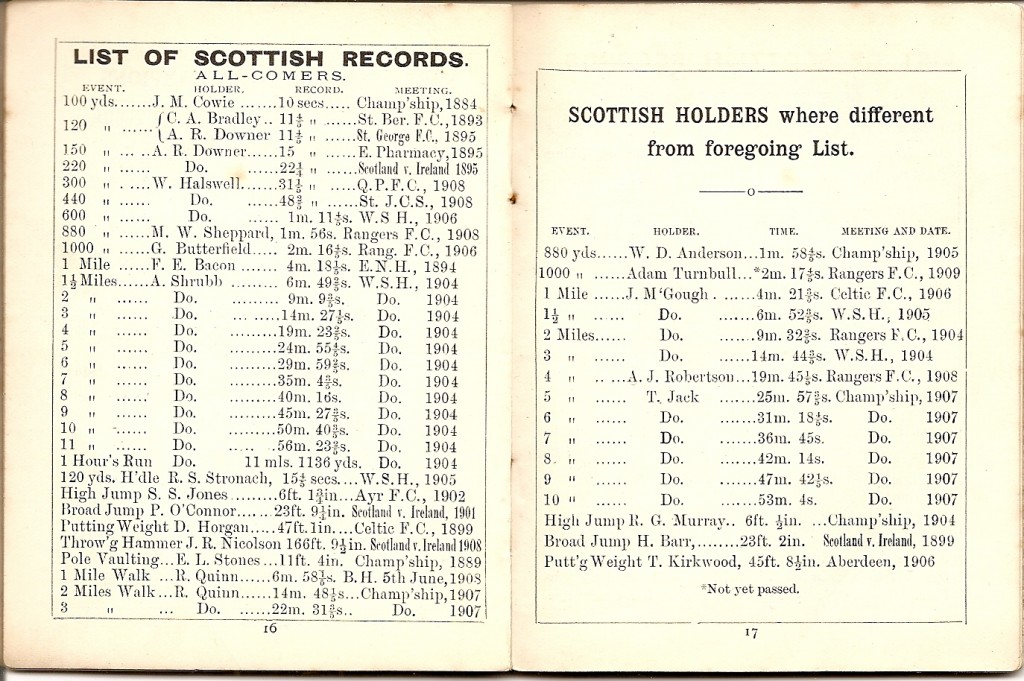 LIST OF SCOTTISH RECORDS.
ALL-COMERS.
EVENT. HOLDER. RECORD. MEETING.
100 yds.......J. M. Cowie .......10 secs..... Champ'ship, 1884
120 " ...... { C. A. Bradley.. 11⅘ " ......St. Ber. F.C., 1893
A. R. Downer 11⅘ " ......St. George F.C., 1895
150 " ... ...A. R. Downer......15 " ......E. Pharmacy, 1895
220 " ...... Do. ......22¼ " ......Scotland v. Ireland 1895
300 " . .....W. Halswell.......31⅕ " ......Q.P.F.C., 1908
440 " ...... Do. ......48⅖ " ......St. J.C.S., 1908
600 " ...... Do. ...... 1m. 11⅘s. W.S H., 1906
880 " ......M. W. Sheppard, 1m. 56s. Rangers F.C., 1908
1000 " ......G. Butterfield..... 2m. 16⅘s. Rang. F.C., 1906
1 Mile ......F. E. Bacon ......... 4m. 18⅕s. E.N.H., 1894
1½ Miles......A. Shrubb ......... 6m. 49⅖s. W.S.H., 1904
2 " ...... Do. ......... 9m. 9⅗s. Do. 1904
3 " ...... Do. ... ......14m. 27⅕s. Do. 1904
4 " ...... Do. .........19m. 23⅖s. Do. 1904
5 " ...... Do. .........24m. 55⅘s. Do. 1904
6 " ...... Do. .........29m. 59⅖s. Do. 1904
7 " ...... Do. .........35m. 4⅗s. Do. 1904
8 " ...... Do. .........40m. 16s. Do. 1904
9 " ...... Do. .........45m. 27⅗s. Do. 1904
10 " ...... Do. .........50m. 40⅗s. Do. 1904
11 " ...... Do. ..... ..56m. 23⅖s. Do. 1904
1 Hour's Run Do. 11 mls. 1136 yds. Do. 1904
120 yds. H'dle R. S. Stronach, 15⅘ secs....W.S.H., 1905
High Jump S. S. Jones .........6ft. 1¾in...Ayr F.C., 1902
Broad Jump P. O'Connor......23ft. 9½in. Scotland v. Ireland, 1901
Putting Weight D. Horgan.....47ft. 1in....Celtic F.C., 1899
Throw'g Hammer J. R. Nicolson 166ft. 9½in. Scotland v. Ireland 1908
Pole Vaulting...E. L. Stones...11ft. 4in. Champ'ship, 1889
1 Mile Walk ...R. Quinn......6m. 58⅕s. B.H. 5th June, 1908
2 Miles Walk...R. Quinn......14m. 48⅕s...Champ'ship, 1907
3 " ... Do. ......22m. 31⅗s.. Do. 1907
16
SCOTTISH HOLDERS where different
from foregoing List.
EVENT. HOLDER. TIME. MEETING AND DATE.
880 yds......W. D. Anderson...1m. 58⅘s. Champ'ship, 1905
1000 " ......Adam Turnbull...*2m. 17⅘s. Rangers F.C., 1909
1 Mile ......J. M'Gough . .......4m. 21⅗s. Celtic F.C., 1906
1½ " ...... Do. .......6m. 52⅗s. W.S.H., 1905
2 Miles...... Do. .......9m. 32⅗s. Rangers F.C., 1904
3 " ...... Do. .......14m. 44⅗s. W.S.H., 1904
4 " .. ...A. J. Robertson...19m. 45⅕s. Rangers F.C., 1908
5 " ...... T. Jack .......25m. 57⅗s. Champ'ship, 1907
6 " ...... Do. .......31m. 18⅘s. Do. 1907
7 " ...... Do. .......36m. 45s. Do. 1907
8 " ...... Do. .......42m. 14s. Do. 1907
9 " ...... Do. .......47m. 42⅕s. Do. 1907
10 " ...... Do. .......53m. 4s. Do. 1907
High Jump R. G. Murray.. 6ft. ½in. ...Champ'ship, 1904
Broad Jump H. Barr,........23ft. 2in. Scotland v. Ireland, 1899
Putt'g Weight T. Kirkwood, 45ft. 8½in. Aberdeen, 1906
*Not yet passed.
17